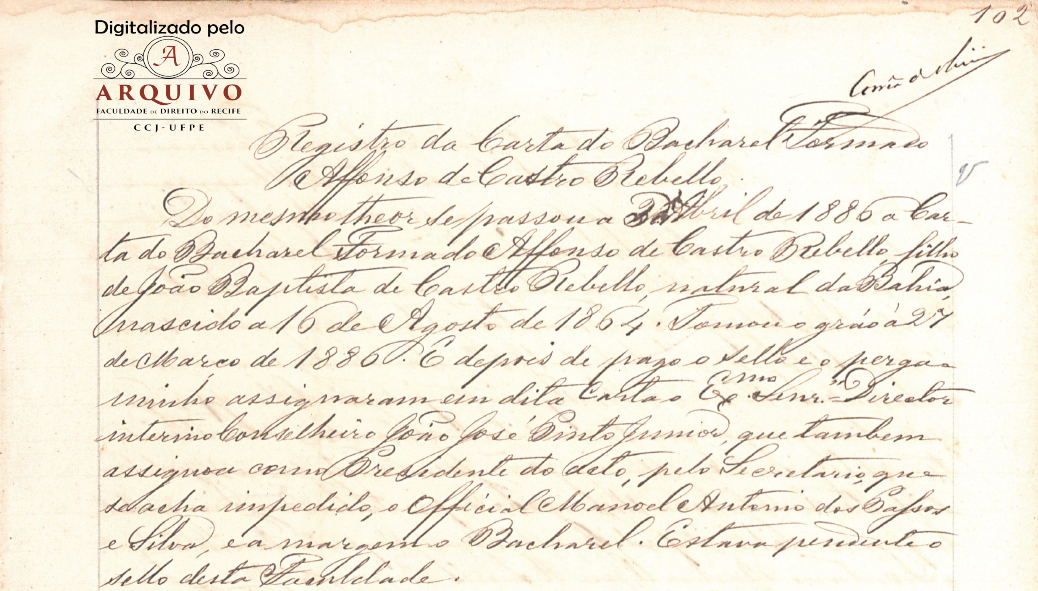 102
Digitalizado pelo
A
ARQUIVO
FACULDADE DE DIREITO DO RECIFE
CCJ-UFPE
Registro da Carta do Bacharel Formado
Affonso de Castro Rebello.
Do mesmo theor se passou a Abril de 1886 a Car-
ta do Bacharel Formado Affonso de Castro Rebello, filho
de João Baptista de Castro Rebello, natural da Bahia,
nascido a 16 de Agosto de 1864. Tomou o gráo à 27
de Março de 1886. E depois de pago o sello e o perga-
minho assignaram em dita Carta o Exmo. Senr. Director
interino Conselheiro João José Pinto Junior, que tambem
assignou como Presidente do acto, pelo Secretario, que
se acha impedido, o Official Manoel Antonio dos Passos
e Silva, e a margem o Bacharel. Estava pendente o
sello desta Faculdade.